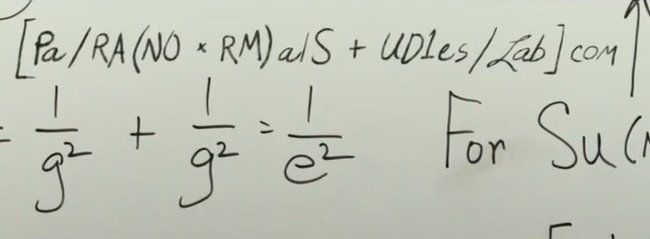 [Pa/RA(NO × RM)alS + UD1es/Lab]com
= 1/g² + 1/g² = 1/e² For Su(